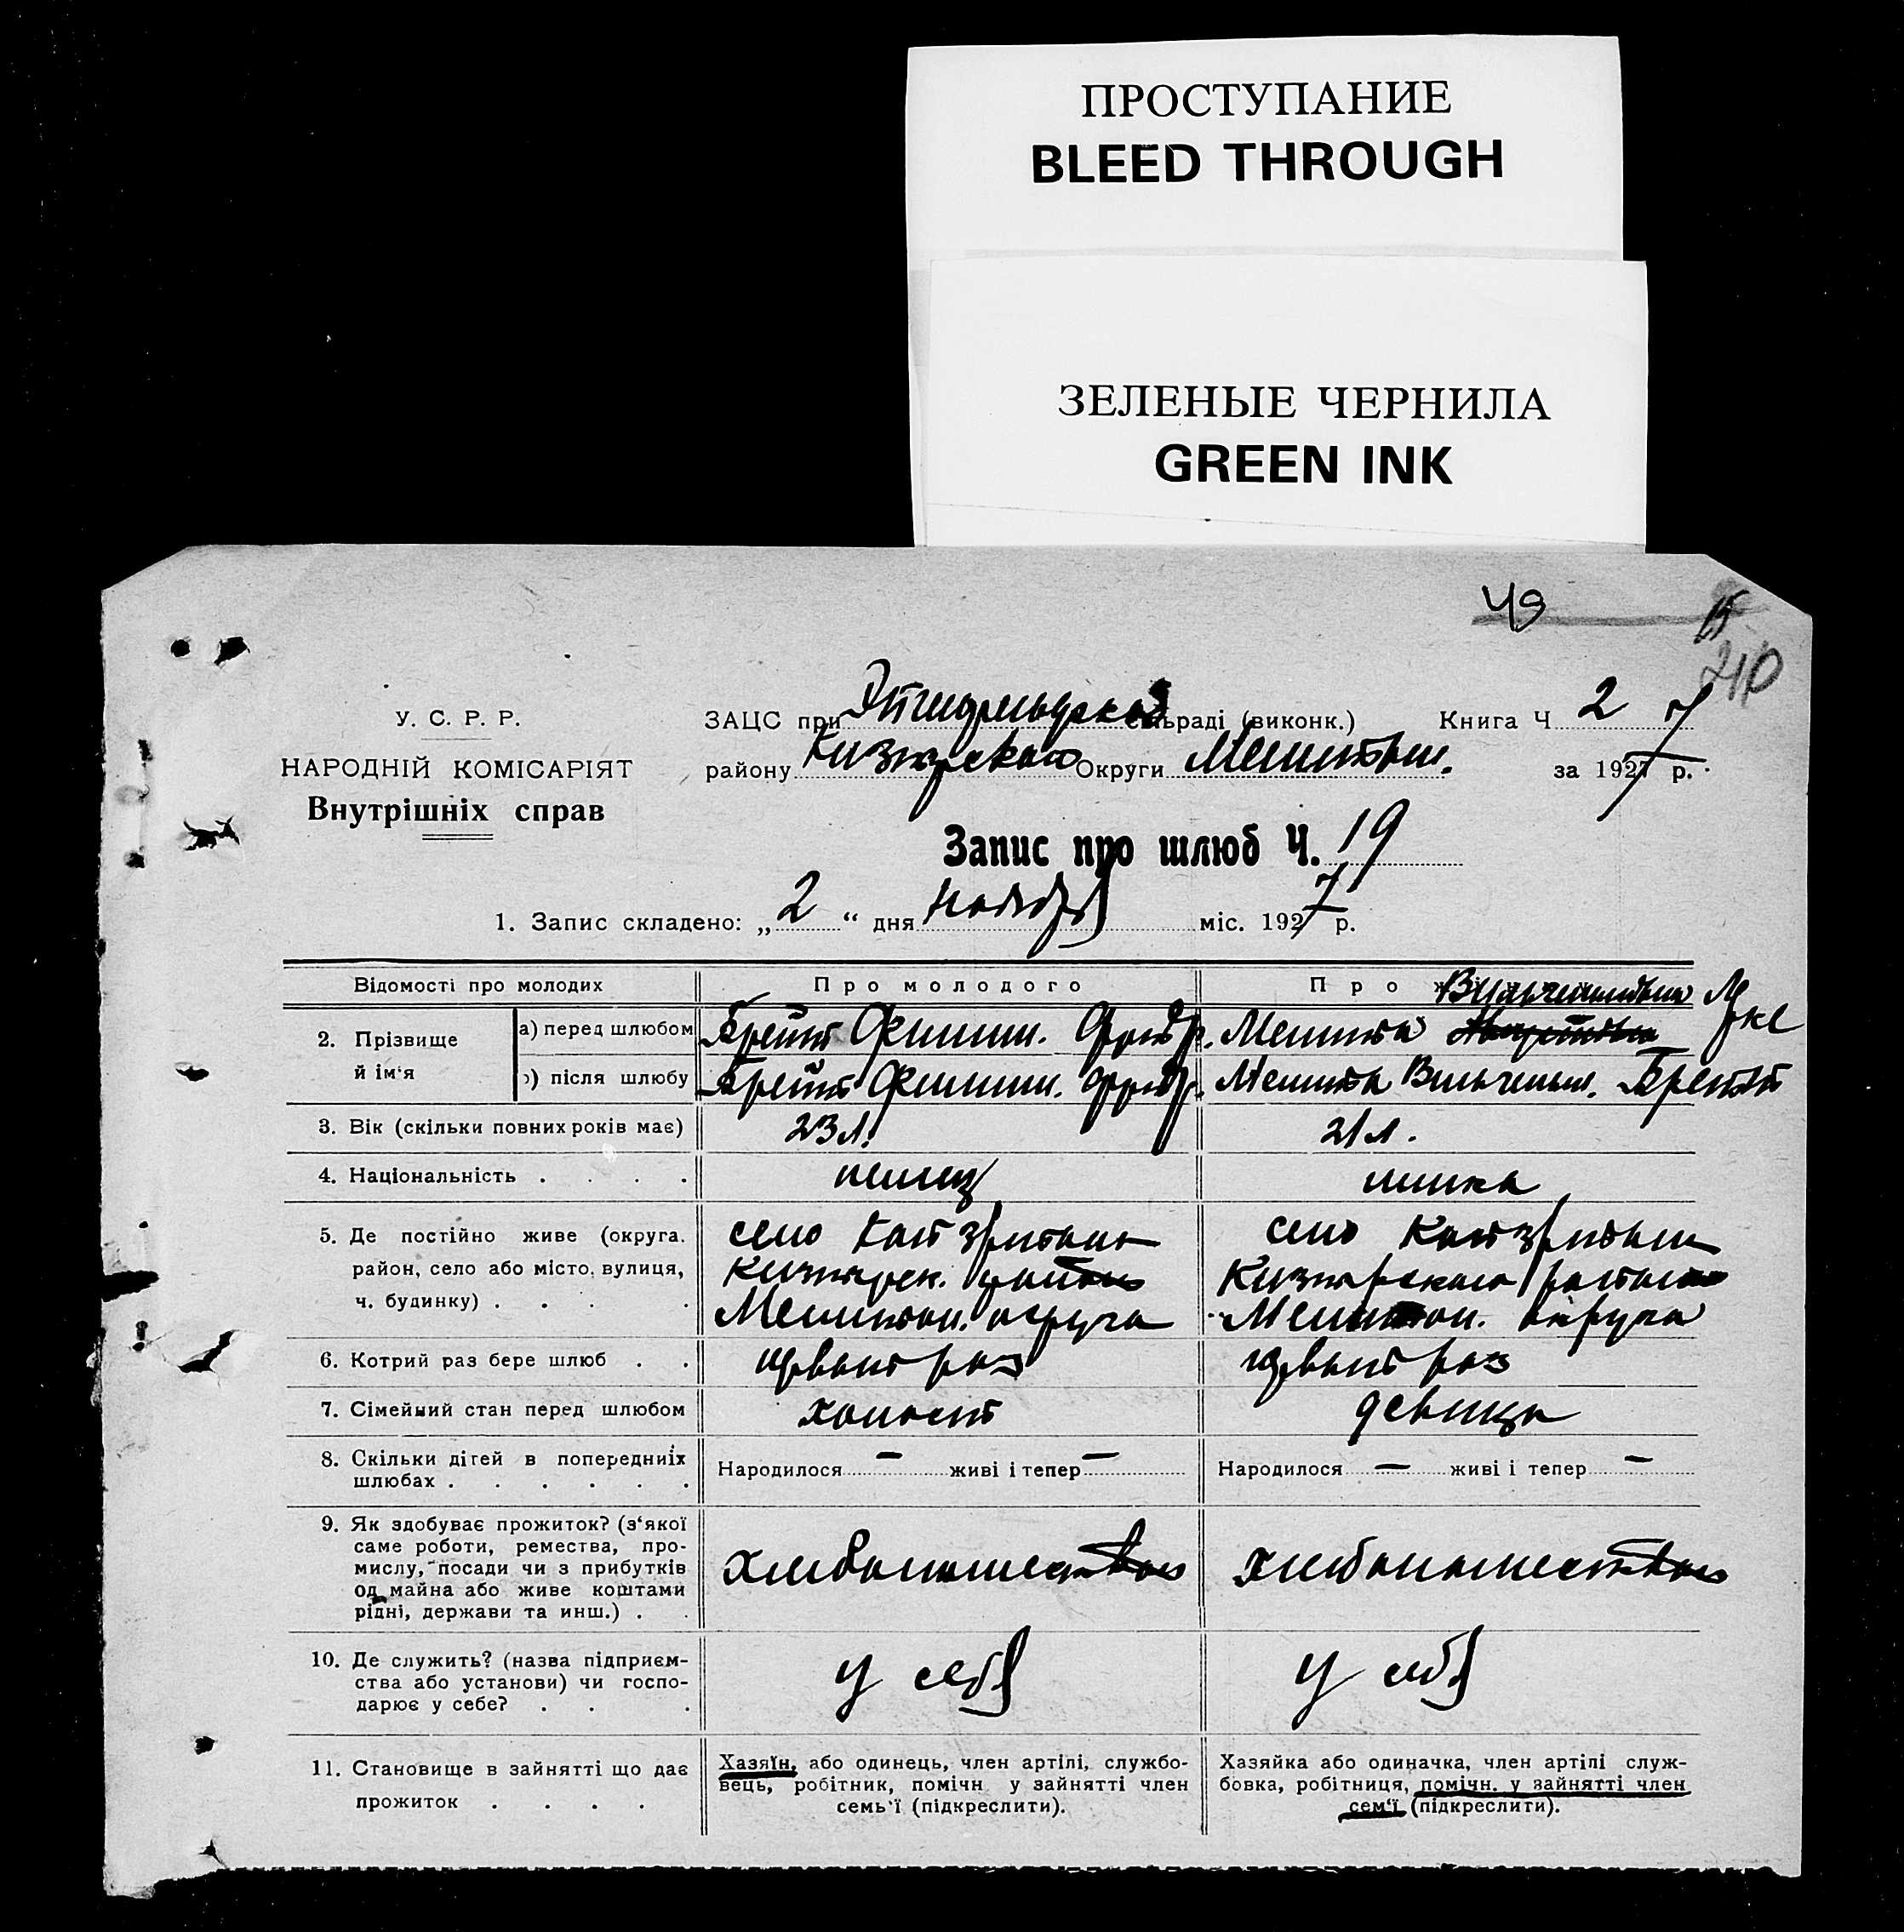 ПРОСТУПАНИЕ
BLEED THROUGH
ЗЕЛЕНЫЕ ЧЕРНИЛА
GREEN INK
49
15
210
У. С. Р. Р.
НАРОДНІЙ КОМІСАРІЯТ
Внутрішніх справ
ЗАЦС при сільраді (виконк.) Книга Ч 2
району Кизярского Округи Мелитоп.
за 1927 р.
Запис про шлюб Ч. 19
1. Запис складено: „2“ дня ноября міс. 1927 р.
Відомості про молодих
Про молодого
Про
2. Прізвище й ім'я
а) перед шлюбом
Брейт Филипп. Фридр.
Мелитта
б) після шлюбу
Брейт Филипп. Фридр.
Мелитта Вильгельм. Брейт
3. Вік (скільки повних років має)
23 л.
21 л.
4. Національність . . . .
немец
немка
5. Де постійно живе (округа, район, село або місто, вулиця, ч. будинку) . . . .
село
Кизярск. района
Мелитоп. округа
село
Кизярского района
Мелитоп. округа
6. Котрий раз бере шлюб . .
первый раз
первый раз
7. Сімейний стан перед шлюбом
холост
девица
8. Скільки дітей в попередніх шлюбах . . . . . .
Народилося — живі і тепер —
Народилося — живі і тепер —
9. Як здобуває прожиток? (з'якої саме роботи, ремества, промислу, посади чи з прибутків од майна або живе коштами рідні, держави та инш.) . .
хлебопашеством
хлебопашеством
10. Де служить? (назва підприємства або установи) чи господарює у себе? . . .
у себя
у себя
11. Становище в зайнятті що дає прожиток . . . .
Хазяїн, або одинець, член артілі, службовець, робітник, помічн. у зайнятті член семь'ї (підкреслити).
Хазяйка або одиначка, член артілі службовка, робітниця, помічн. у зайнятті член сем'ї (підкреслити).